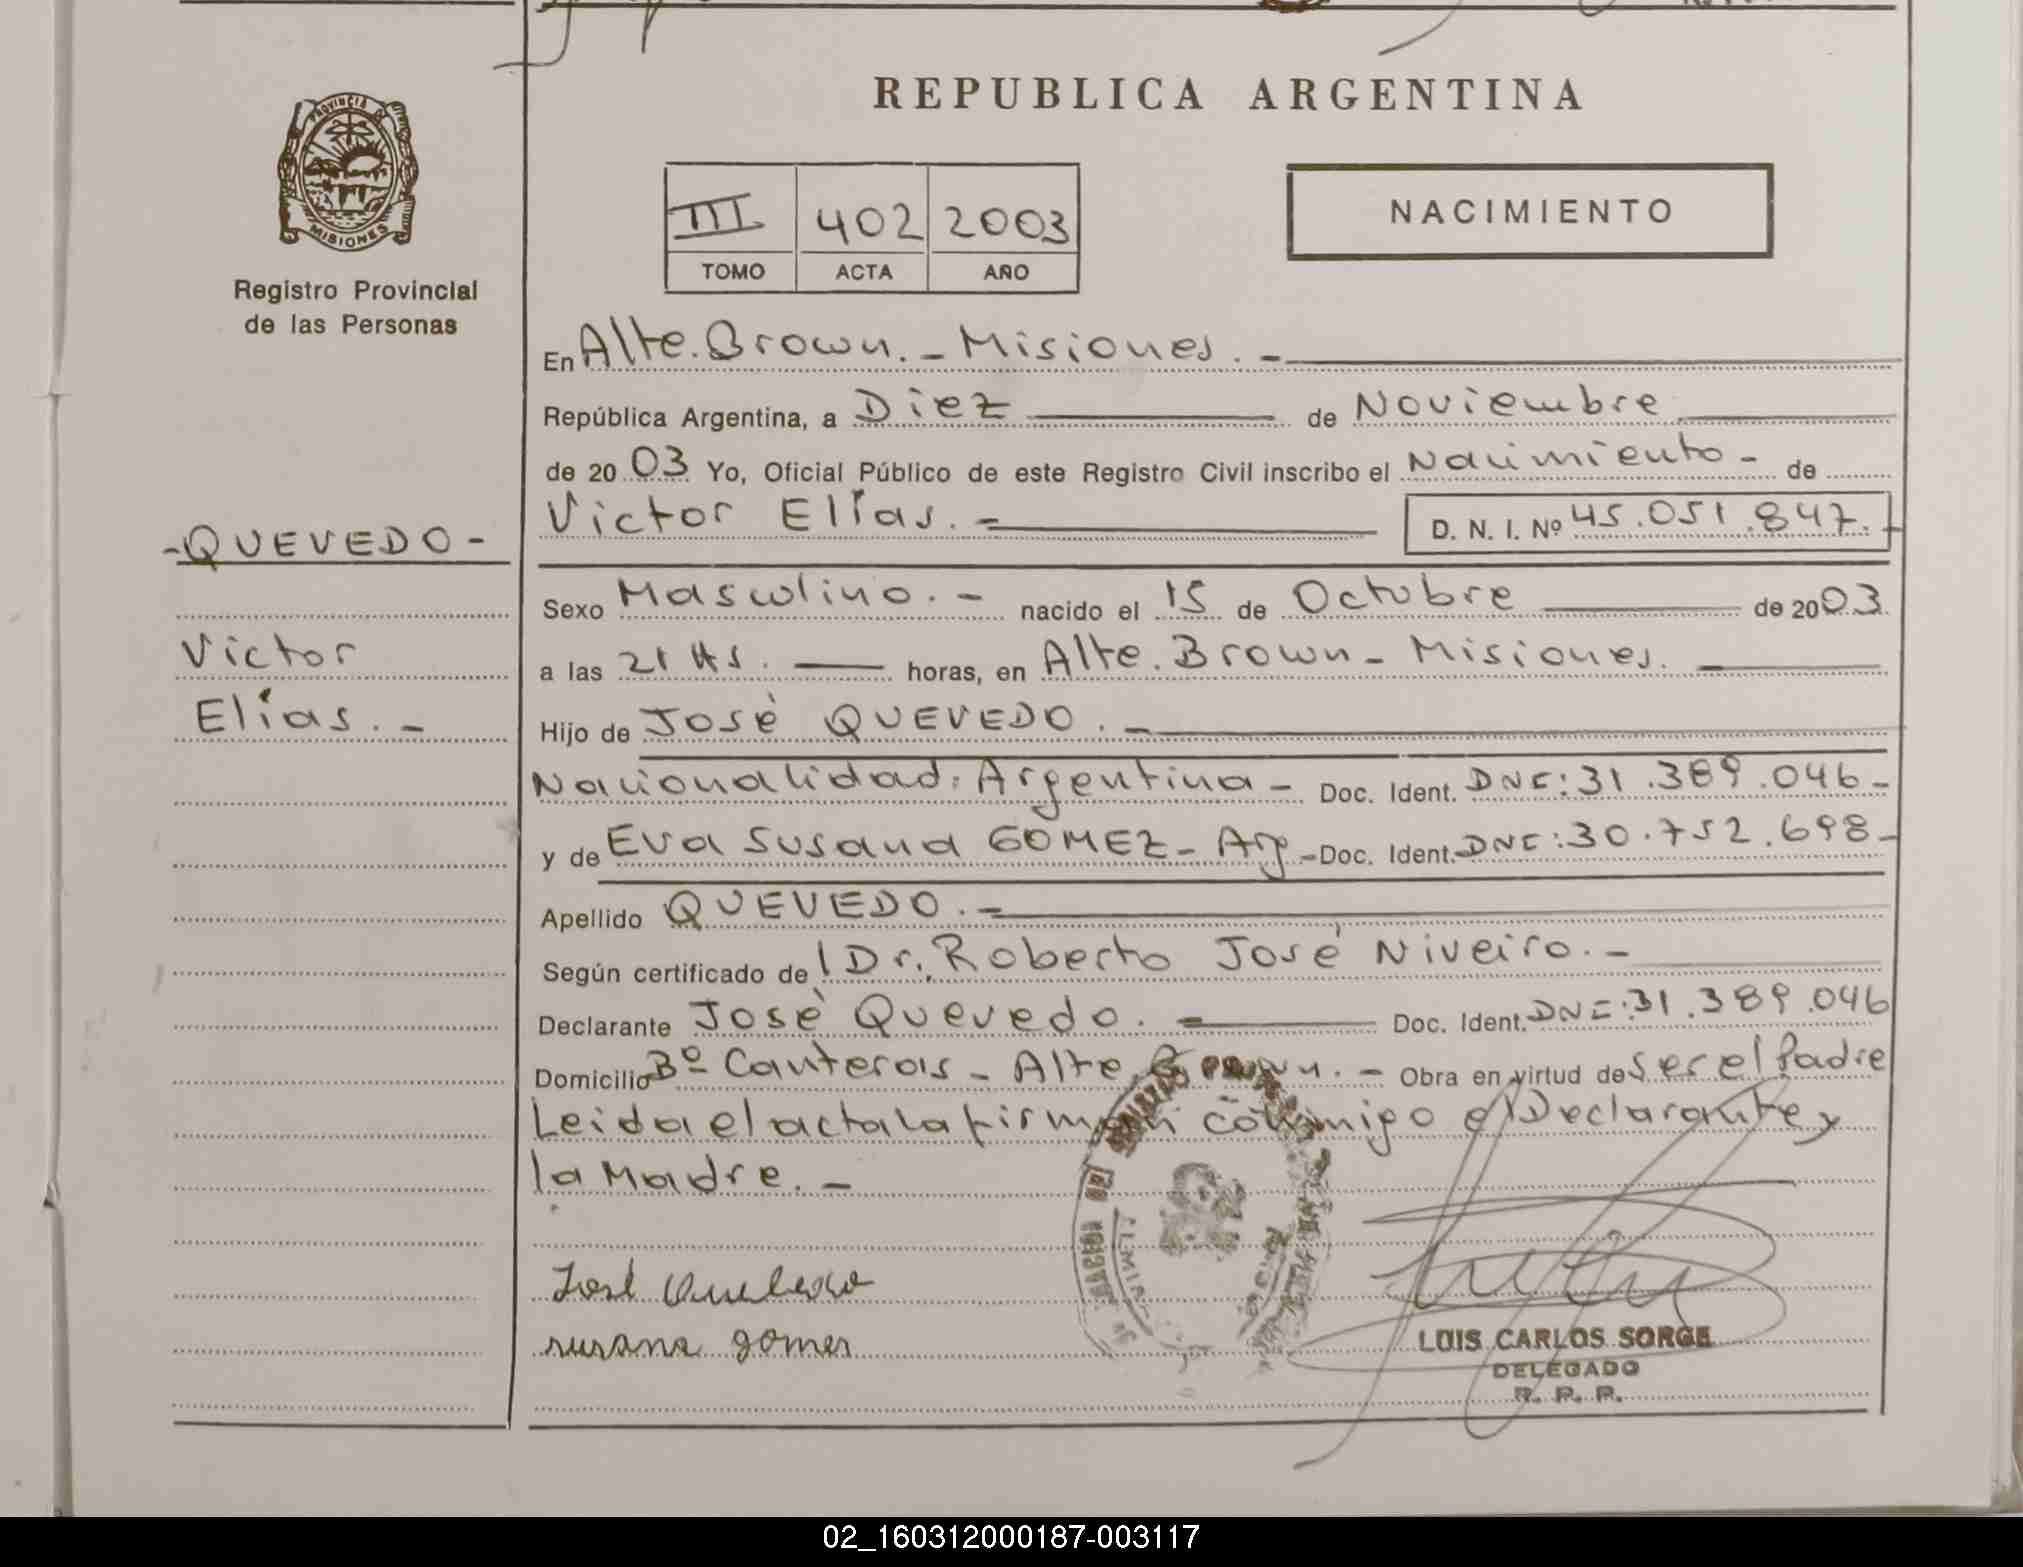 REPUBLICA ARGENTINA
PROVINCIA DE MISIONES
Registro Provincial
de las Personas
III 402 2003
TOMO ACTA AÑO
NACIMIENTO
En Alte. Brown. - Misiones. -
República Argentina, a Diez de Noviembre
de 2003 Yo, Oficial Público de este Registro Civil inscribo el Nacimiento - de
Victor Elías. - D. N. I. Nº 45.051.847. -
- QUEVEDO -
Victor
Elías. -
Sexo Masculino. - nacido el 15 de Octubre de 2003
a las 21 Hs. horas, en Alte. Brown - Misiones.
Hijo de José QUEVEDO. -
Nacionalidad: Argentina - Doc. Ident. DNI: 31.389.046 -
y de Eva Susana GOMEZ - Arg - Doc. Ident. DNI: 30.752.698 -
Apellido QUEVEDO. -
Según certificado de l Dr. Roberto José Niveiro. -
Declarante José Quevedo. Doc. Ident. DNI: 31.389.046
Domicilio Bº Canteras - Alte. Brown. - Obra en virtud de Ser el Padre
Leida el acta la firman conmigo el Declarante y
la Madre. -
José Quebedo
susana gomes
LUIS CARLOS SORGE
DELEGADO
R. P. P.
02_160312000187-003117